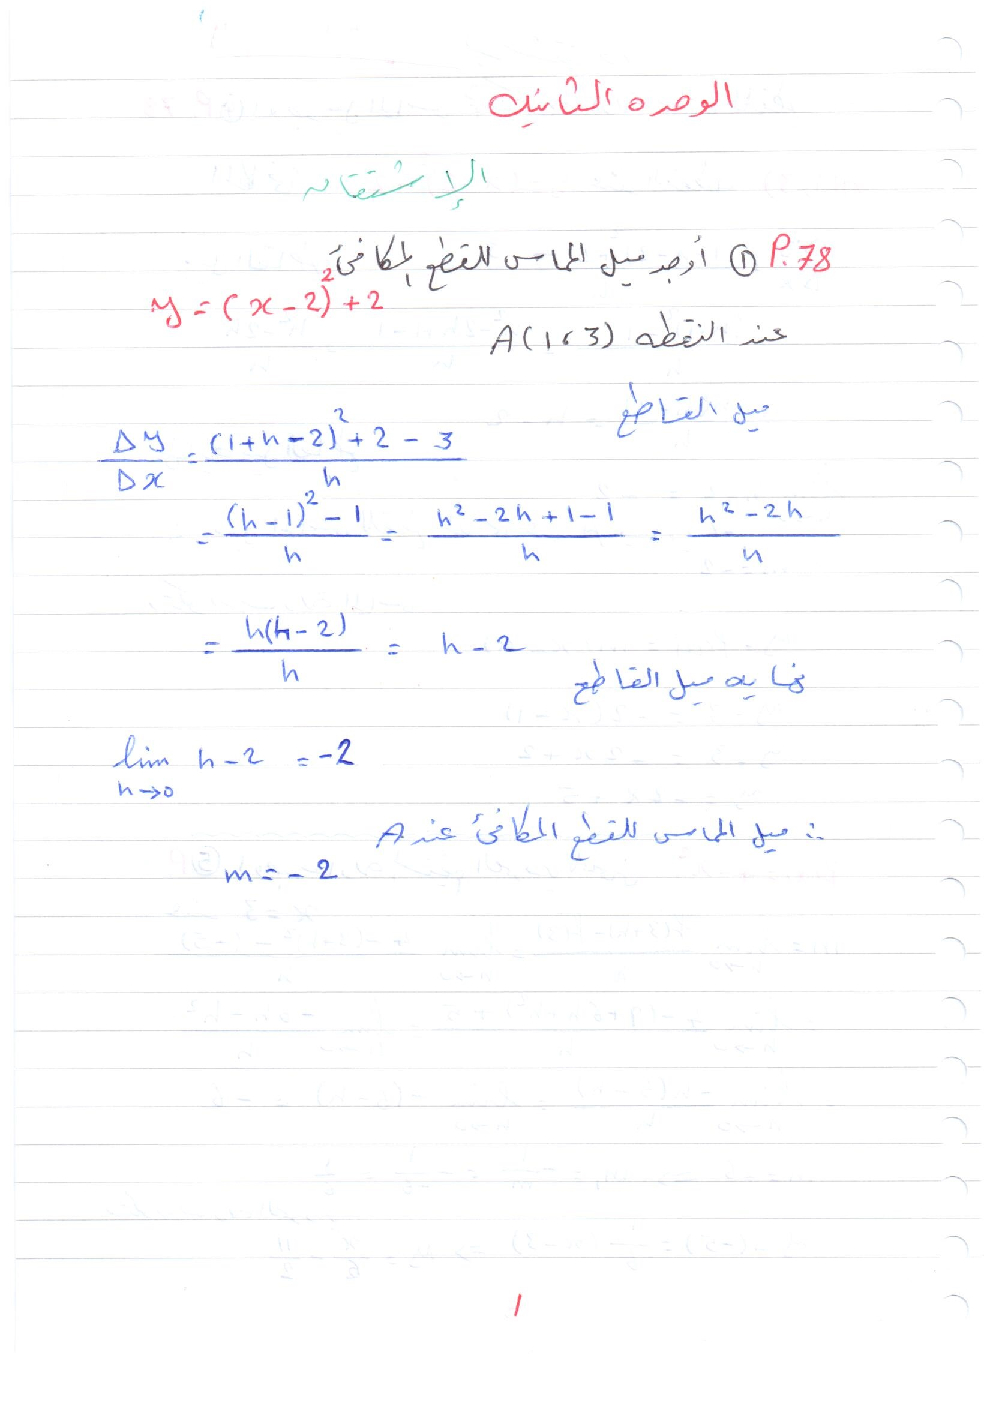 الوحده الثانيه
الإشتقاق
P.78 ① أوجد ميل المماس للقطع المكافئ
y = (x - 2)² + 2
عند النقطه A(1، 3)
ميل القاطع
Δy/Δx = ((1+h-2)² + 2 - 3)/h
= ((h-1)² - 1)/h = (h² - 2h + 1 - 1)/h = (h² - 2h)/h
= h(h-2)/h = h - 2
نهايه ميل القاطع
lim h→0 h - 2 = -2
∴ ميل المماس للقطع المكافئ عند A
m = -2
1